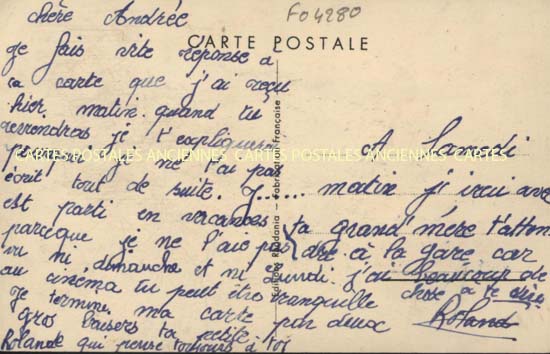 Fo 4280
CARTE POSTALE
chère Andrée
je fais vite réponse a
ta carte que j'ai reçu
hier matin quand tu
reviendras je t'expliquerai
pourquoi je ne t'ai pas
écrit tout de suite. J......
est parti en vacances
parceque je ne l'aie pas
vu ni dimanche et ni jeudi
au cinéma tu peut être tranquille
Je termine ma carte
gros baisers ta petite
Rolande qui pense toujours à toi
A Samedi
matin j'irai avec
ta grand'mère t'atten
dre à la gare car
j'ai beaucoup de
chose a te dire
par deux
Roland
Editions Rhodania - Fabrication Française
CARTES POSTALES ANCIENNES CARTES POSTALES ANCIENNES CARTES